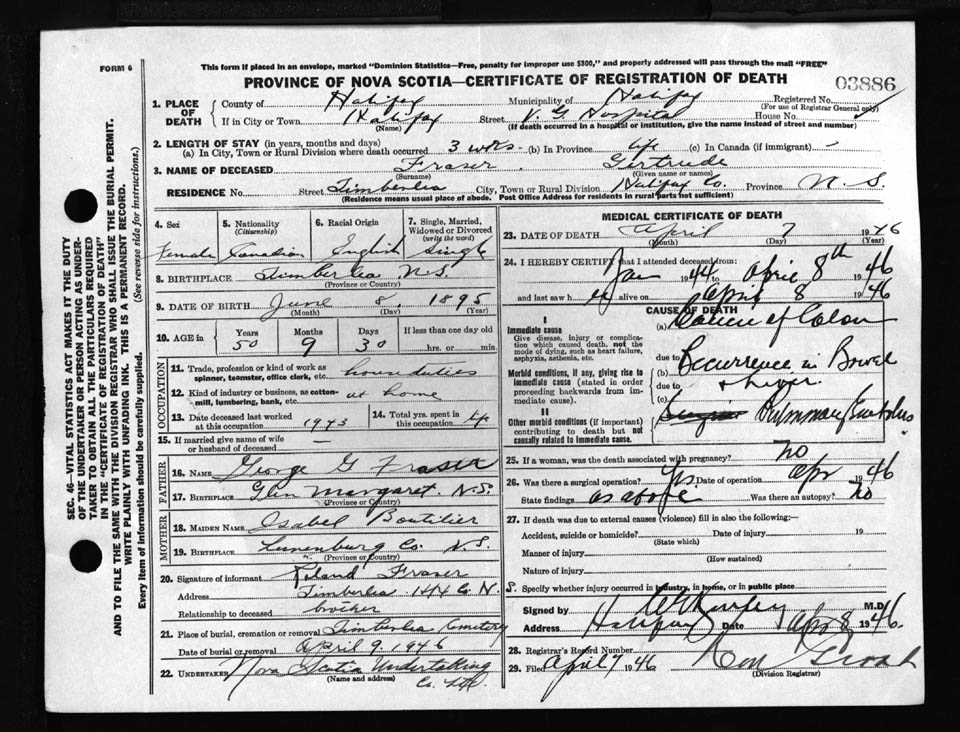 FORM 6
This form if placed in an envelope, marked "Dominion Statistics—Free, penalty for improper use $300," and properly addressed will pass through the mail "FREE"
PROVINCE OF NOVA SCOTIA—CERTIFICATE OF REGISTRATION OF DEATH
03886
1. PLACE OF DEATH
County of Halifax Municipality of Halifax Registered No.
(For use of Registrar General only)
If in City or Town Halifax Street V. G. Hospital House No.
(Name) (If death occurred in a hospital or institution, give the name instead of street and number)
2. LENGTH OF STAY (in years, months and days)
(a) In City, Town or Rural Division where death occurred 3 wks - (b) In Province life (c) In Canada (if immigrant) -
3. NAME OF DECEASED Fraser, Gertrude
(Surname) (Given name or names)
RESIDENCE No. Street Timberlea City, Town or Rural Division Halifax Co. Province N. S.
(Residence means usual place of abode. Post Office Address for residents in rural parts not sufficient)
SEC. 46—VITAL STATISTICS ACT MAKES IT THE DUTY
OF THE UNDERTAKER OR PERSON ACTING AS UNDER-
TAKER TO OBTAIN ALL THE PARTICULARS REQUIRED
IN THE "CERTIFICATE OF REGISTRATION OF DEATH"
AND TO FILE THE SAME WITH THE DIVISION REGISTRAR WHO SHALL ISSUE THE BURIAL PERMIT.
WRITE PLAINLY WITH UNFADING INK. THIS IS A PERMANENT RECORD.
Every item of information should be carefully supplied. (See reverse side for instructions.)
4. Sex 5. Nationality (Citizenship) 6. Racial Origin 7. Single, Married, Widowed or Divorced (write the word)
Female Canadian English Single
8. BIRTHPLACE Timberlea N.S.
(Province or Country)
9. DATE OF BIRTH June 8, 1895
(Month) (Day) (Year)
10. AGE in Years Months Days If less than one day old
50 9 30 hrs. or min.
OCCUPATION
11. Trade, profession or kind of work as spinner, teamster, office clerk, etc. house duties
12. Kind of industry or business, as cotton-mill, lumbering, bank, etc. at home
13. Date deceased last worked at this occupation 1943 14. Total yrs. spent in this occupation life
15. If married give name of wife or husband of deceased —
FATHER
16. NAME George G Fraser
17. BIRTHPLACE Glen Margaret. N.S.
(Province or Country)
MOTHER
18. MAIDEN NAME Isabel Boutilier
19. BIRTHPLACE Lunenburg Co. N.S.
(Province or Country)
20. Signature of informant Roland Fraser
Address Timberlea. Hfx Co. N. S.
Relationship to deceased brother
21. Place of burial, cremation or removal Timberlea Cemetery
Date of burial or removal April 9, 1946
22. UNDERTAKER Nova Scotia Undertaking
(Name and address) Co. Ltd.
MEDICAL CERTIFICATE OF DEATH
23. DATE OF DEATH April 7 1946
(Month) (Day) (Year)
24. I HEREBY CERTIFY that I attended deceased from
Jan 1944 to April 8th 1946
and last saw her alive on April 8 1946
CAUSE OF DEATH
I
Immediate cause
Give disease, injury or complication which caused death, not the mode of dying, such as heart failure, asphyxia, asthenia, etc.
(a) Cancer of Colon
due to
Morbid conditions, if any, giving rise to immediate cause (stated in order proceeding backwards from immediate cause).
(b) Occurrence in Bowel
due to & Liver.
(c)
II
Other morbid conditions (if important) contributing to death but not causally related to immediate cause.
Pulmonary Embolus
25. If a woman, was the death associated with pregnancy? No
26. Was there a surgical operation? Yes. Date of operation Apr 1946
State findings as above Was there an autopsy? No
27. If death was due to external causes (violence) fill in also the following:—
Accident, suicide or homicide? Date of injury 19
(State which)
Manner of injury
(How sustained)
Nature of injury
Specify whether injury occurred in industry, in home, or in public place
Signed by M.D.
Address Halifax Date Apr 8 1946.
28. Registrar's Record Number
29. Filed April 9 1946
(Division Registrar)